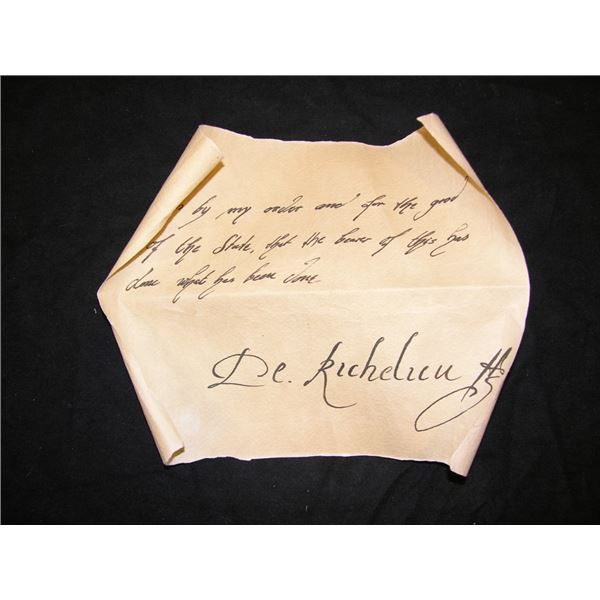 by my order and for the good
of the State, that the bearer of this has
done what has been done
De. Richelieu